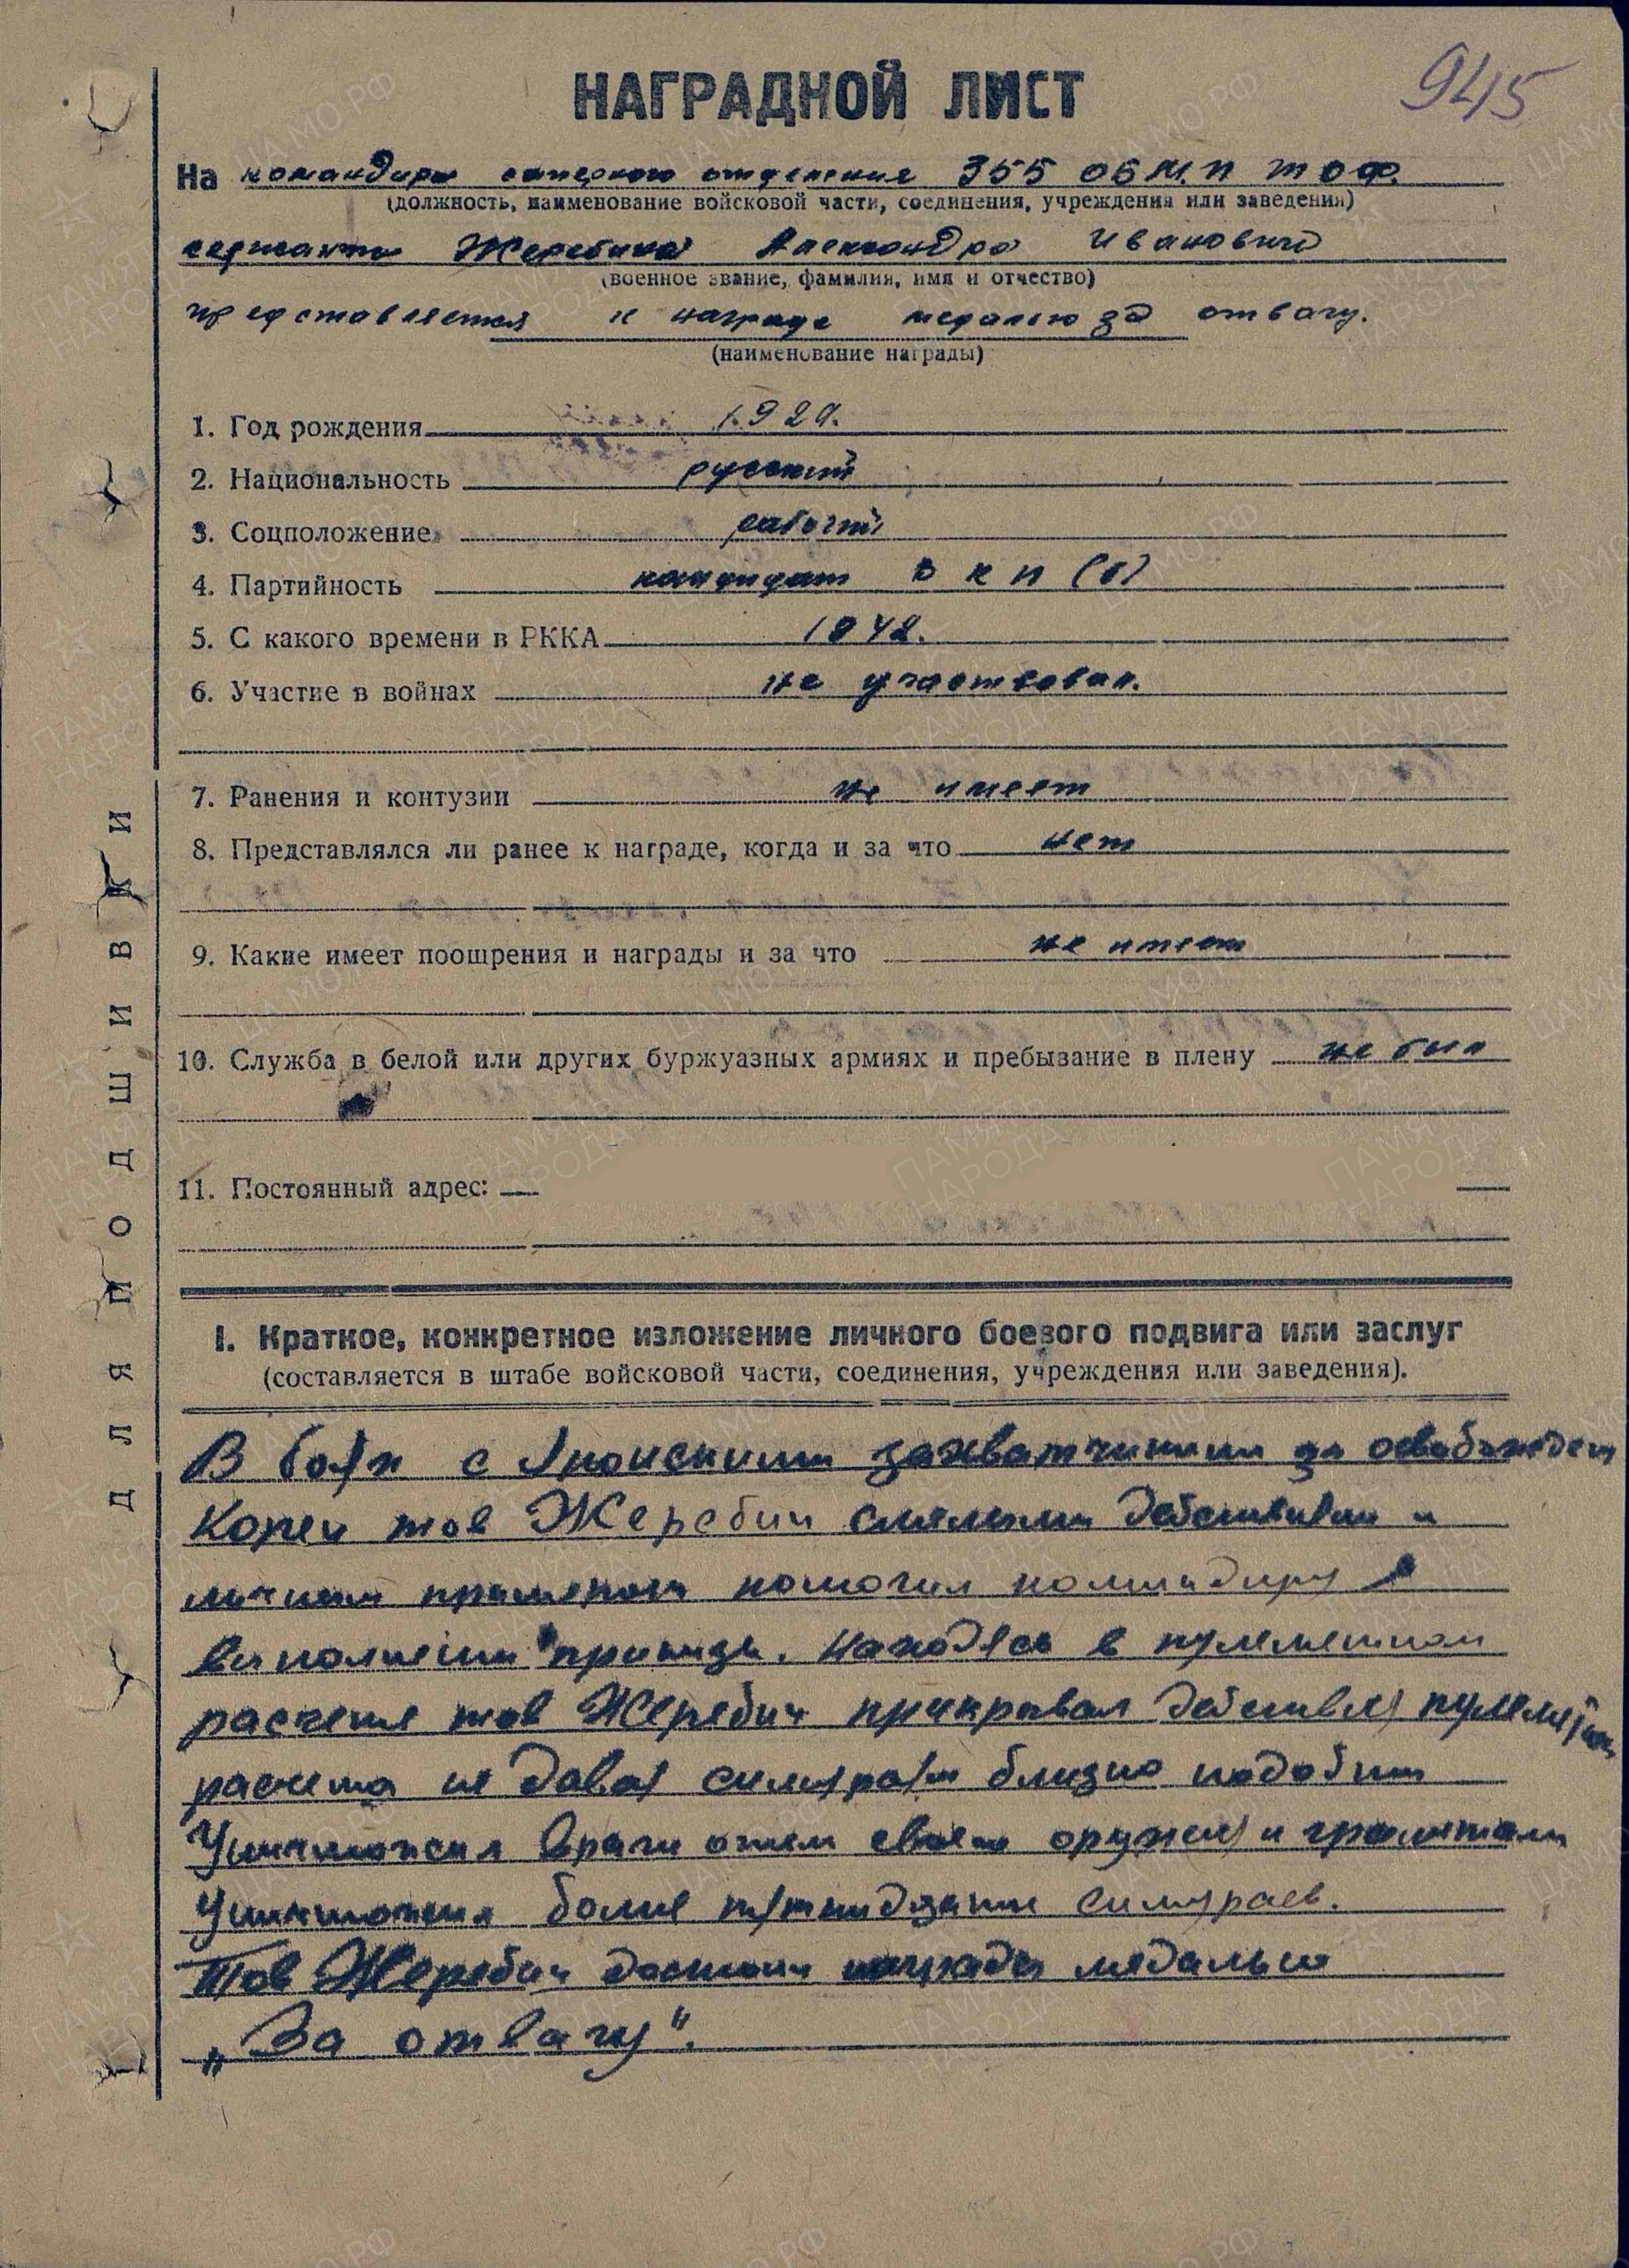 945
НАГРАДНОЙ ЛИСТ
На командира саперного отделения 355 ОБМ.П ТОФ.
(должность, наименование войсковой части, соединения, учреждения или заведения)
сержанта Жеребина Александра Ивановича
(военное звание, фамилия, имя и отчество)
представляется к награде медалью за отвагу.
(наименование награды)
1. Год рождения
2. Национальность русский
3. Соцположение рабочий
4. Партийность кандидат ВКП(б)
5. С какого времени в РККА 1942.
6. Участие в войнах не участвовал.
7. Ранения и контузии не имеет
8. Представлялся ли ранее к награде, когда и за что нет
9. Какие имеет поощрения и награды и за что не имеет
10. Служба в белой или других буржуазных армиях и пребывание в плену не был
11. Постоянный адрес:
I. Краткое, конкретное изложение личного боевого подвига или заслуг
(составляется в штабе войсковой части, соединения, учреждения или заведения).
В боях с Японскими захватчиками за
Кореи тов Жеребин смелыми действиями и
личным примером помогал командиру в
выполнении приказа. Находясь в пулеметном
расчете тов Жеребин прикрывал действия
расчета не давая самураям близко подойти
Уничтожал врага огнем своего оружия и гранатами
Уничтожил более самураев.
Тов Жеребин достоин награды медалью
„За отвагу".
ДЛЯ ПОДШИВКИ
ПАМЯТЬ НАРОДА
ЦАМО.РФ